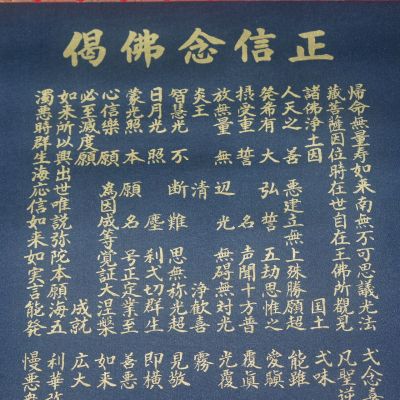 正信念佛偈
帰命無量寿如来南無不可思議光法
蔵菩薩因位時在世自在王佛所覩見
諸佛浄土因国土
人天之善悪建立無上殊勝願超
発希有大弘誓五劫思惟之
摂受重誓名声聞十方普
放無量無辺光無碍無対光
炎王清浄歓喜
智慧光不断難思無称光超
日月光照塵刹弌切群生
蒙光照本願名号正定業至
心信楽願為因成等覚証大涅槃
必至滅度願成就
如来所以興出世唯説弥陀本願海五
濁悪時群生海応信如来如実言能発
弌念喜
凡聖逆
弌味
能雖
愛瞋
覆真
光覆
霧
見敬
即横
善悪
如来
広大
利華弥
慢悪